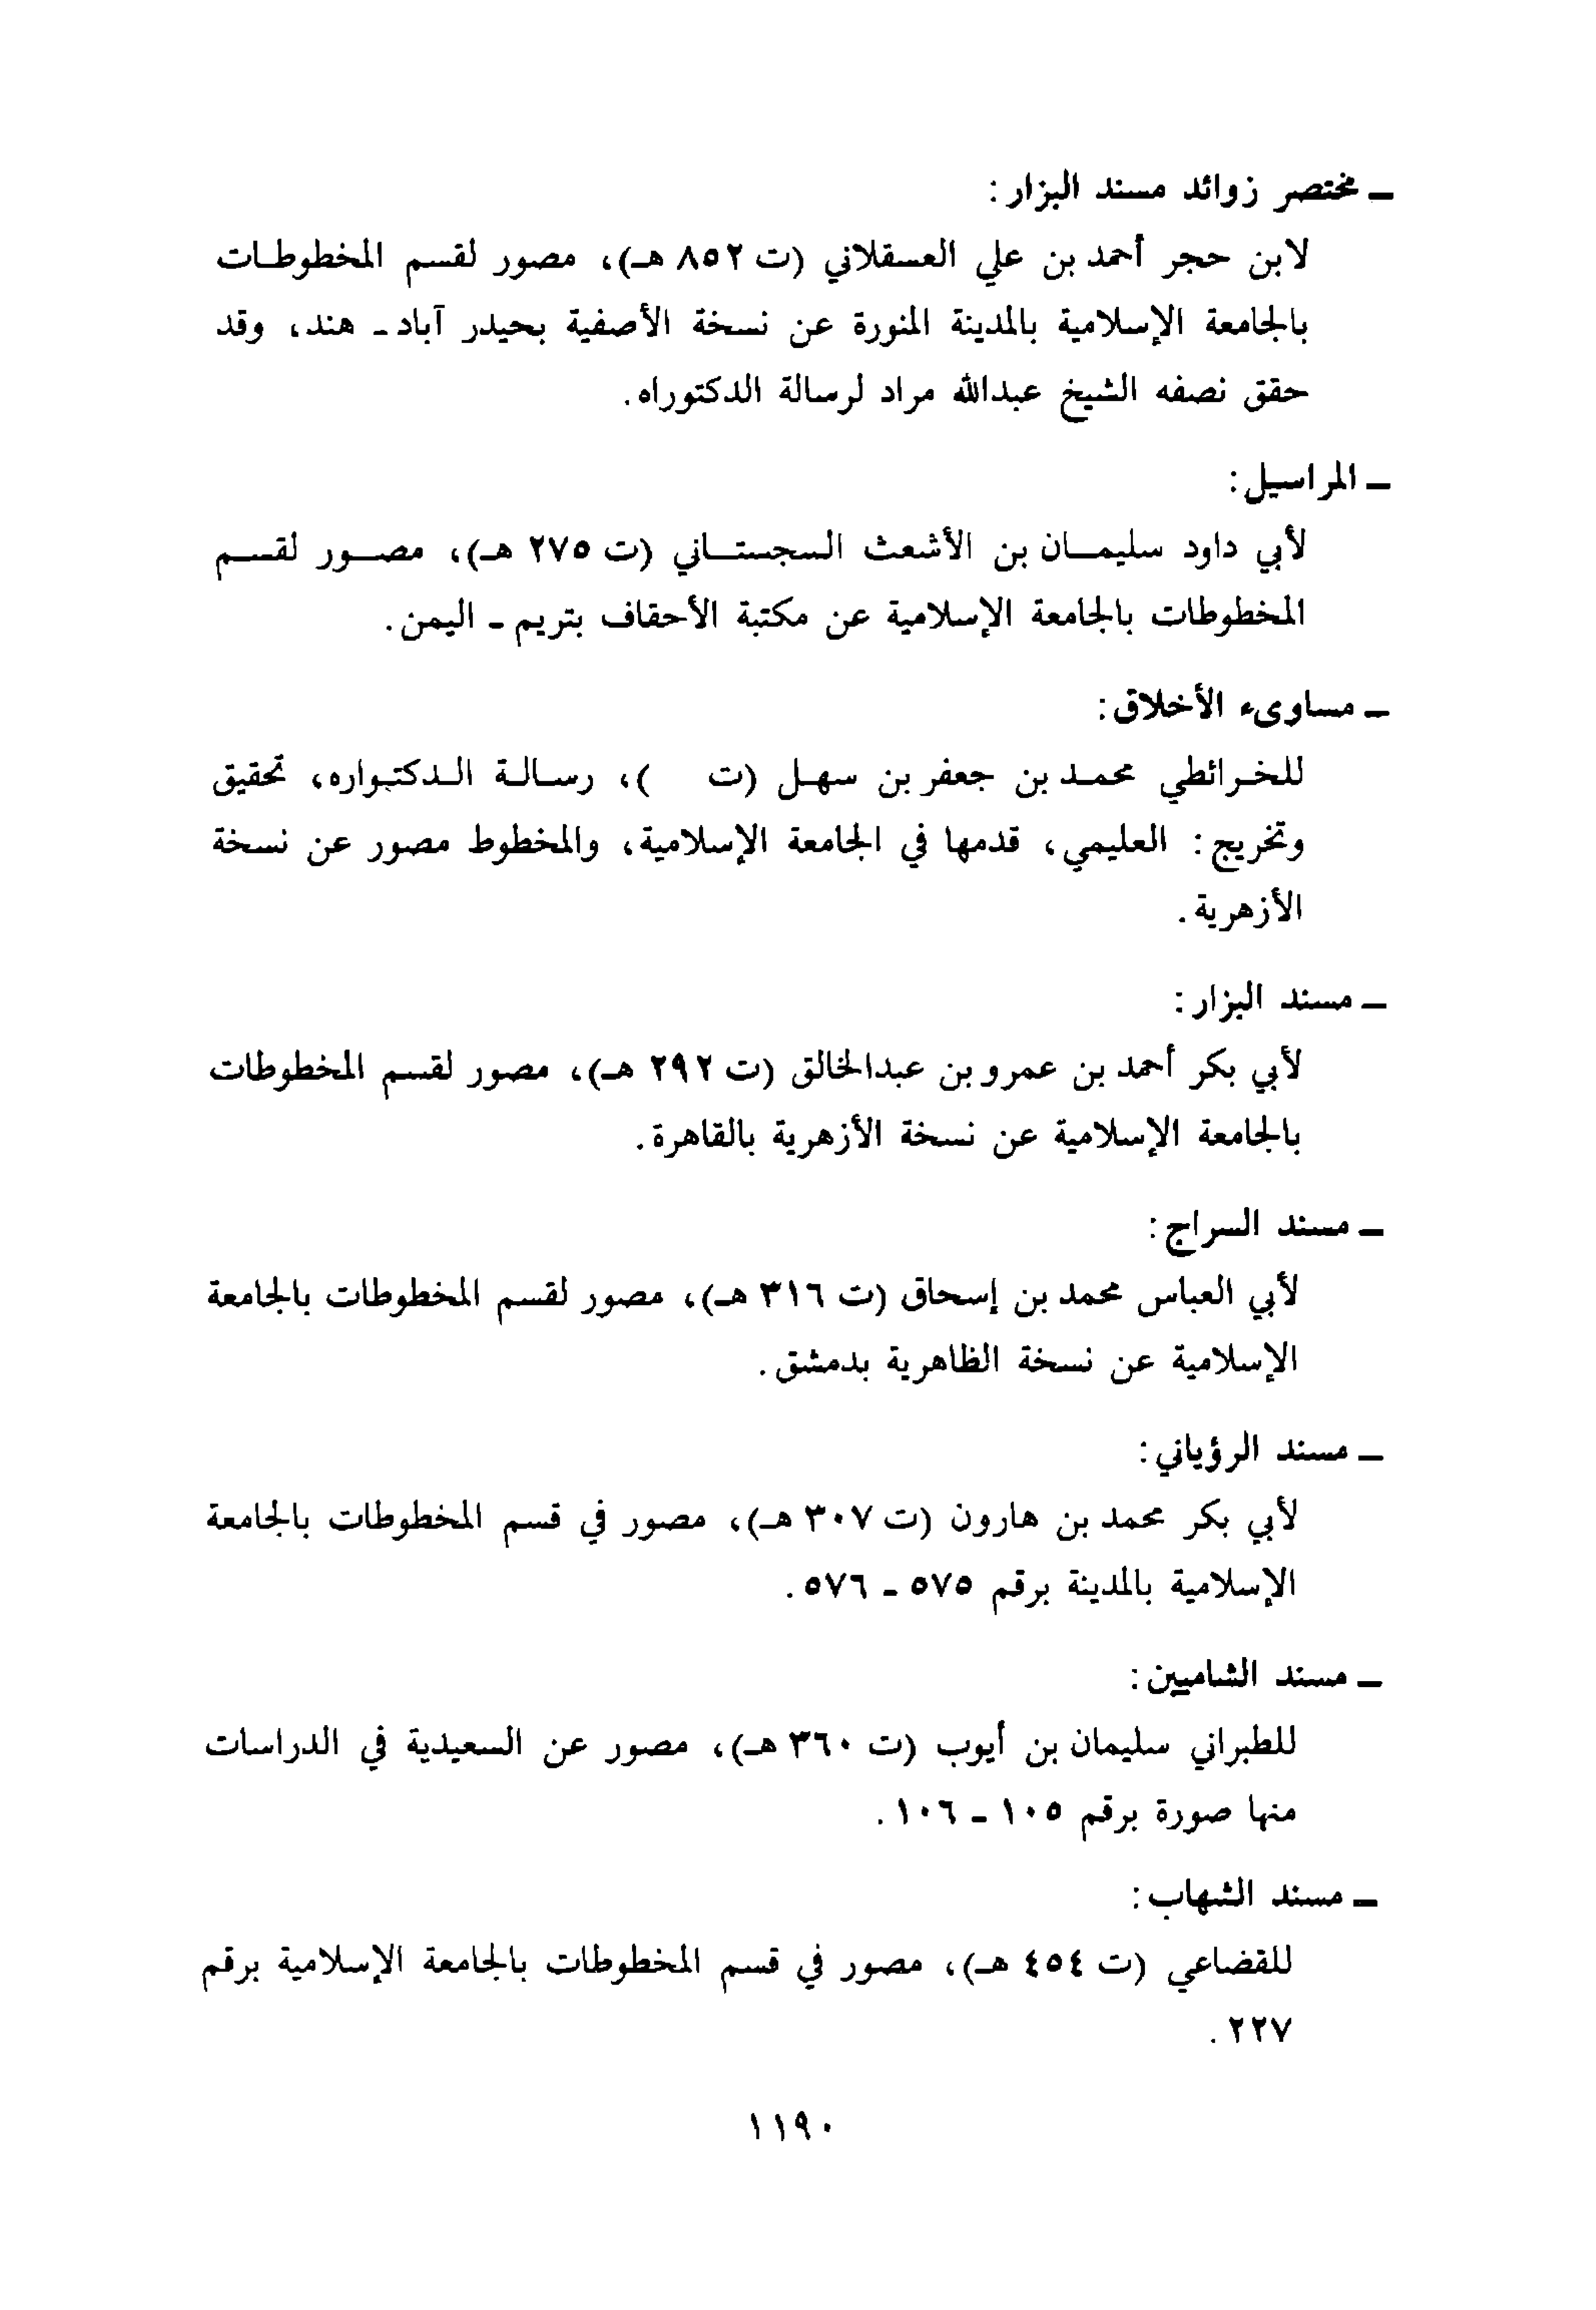 ـ مختصر زوائد مسند البزار :
لابن حجر أحمد بن علي العسقلاني (ت ٨٥٢ هـ)، مصور لقسم المخطوطات
بالجامعة الإسلامية بالمدينة المنورة عن نسخة الأصفية بحيدر آباد ـ هند، وقد
حقق نصفه الشيخ عبدالله مراد لرسالة الدكتوراه .
ـ المراسيل :
لأبي داود سليمان بن الأشعث السجستاني (ت ٢٧٥ هـ)، مصور لقسم
المخطوطات بالجامعة الإسلامية عن مكتبة الأحقاف بتريم ـ اليمن .
ـ مساوىء الأخلاق :
للخرائطي محمد بن جعفر بن سهل (ت )، رسالة الدكتواره، تحقيق
وتخريج : العليمي، قدمها في الجامعة الإسلامية، والمخطوط مصور عن نسخة
الأزهرية .
ـ مسند البزار :
لأبي بكر أحمد بن عمرو بن عبدالخالق (ت ٢٩٢ هـ)، مصور لقسم المخطوطات
بالجامعة الإسلامية عن نسخة الأزهرية بالقاهرة .
ـ مسند السراج :
لأبي العباس محمد بن إسحاق (ت ٣١٦ هـ)، مصور لقسم المخطوطات بالجامعة
الإسلامية عن نسخة الظاهرية بدمشق .
ـ مسند الرؤياني :
لأبي بكر محمد بن هارون (ت ٣٠٧ هـ)، مصور في قسم المخطوطات بالجامعة
الإسلامية بالمدينة برقم ٥٧٥ ـ ٥٧٦ .
ـ مسند الشاميين :
للطبراني سليمان بن أيوب (ت ٣٦٠ هـ)، مصور عن السعيدية في الدراسات
منها صورة برقم ١٠٥ ـ ١٠٦ .
ـ مسند الشهاب :
للقضاعي (ت ٤٥٤ هـ)، مصور في قسم المخطوطات بالجامعة الإسلامية برقم
٢٢٧ .
١١٩٠